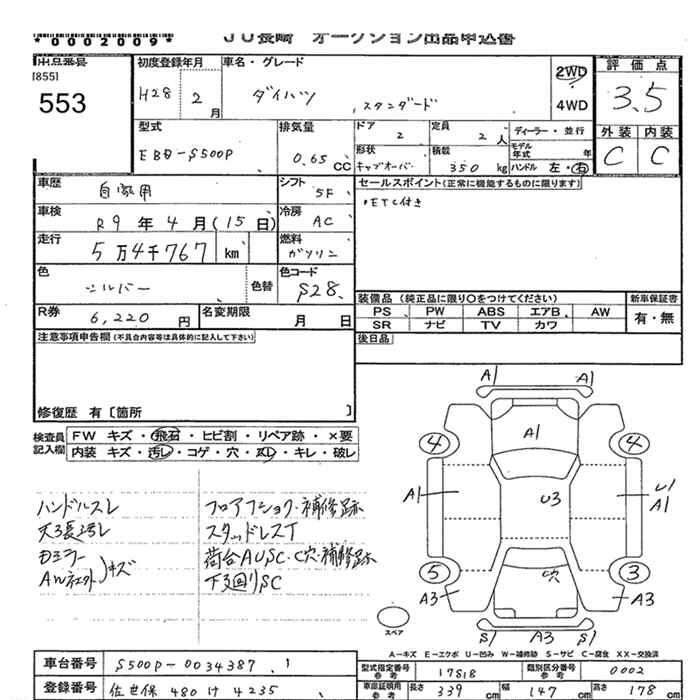 *0002009*
JU長崎 オークション出品申込書
出品番号
[855]
553
初度登録年月
H28 2月
車名・グレード
ダイハツ スタンダード
2WD
4WD
評価点
3.5
外装 内装
C C
型式
EBD-S500P
排気量
0.65 CC
ドア
2
定員
2人
ディーラー・並行
モデル年式 年
形状
キャブオーバー
積載
350 kg
ハンドル 左・右
車歴
自家用
シフト
5F
セールスポイント(正常に機能するものに限ります)
ETC付き
車検
R9年4月(15日)
冷房
AC
走行
5万4千767 km
燃料
ガソリン
色
シルバー
色替
色コード
S28
R券
6,220円
名変期限
月 日
装備品(純正品に限り○をつけてください)
PS PW ABS エアB AW
SR ナビ TV カワ
新車保証書
有・無
注意事項申告欄(不具合内容等は具体的に記入して下さい)
後日品
修復歴 有〔箇所 〕
検査員記入欄
FW キズ・飛石・ヒビ割・リペア跡・×要
内装 キズ・汚レ・コゲ・穴・スレ・キレ・破レ
ハンドルスレ
天張汚レ
ミラー
キズ
フロアフショク・補修跡
スタッドレスT
荷台AUSC・C穴・補修跡
下廻りSC
A1 A1
A1
4 4
A1
U3
U1
A1
5 3
穴
A3 A3
S1 A3 S1
スペア
A-キズ E-エクボ U-凹み W-補修跡 S-サビ C-腐食 XX-交換済
車台番号
S500P-0034387
型式指定番号 参考
17818
類別区分番号 参考
0002
登録番号
佐世保 480 け 4235
車庫証明用 参考
長さ 339 cm
幅 147 cm
高さ 178 cm